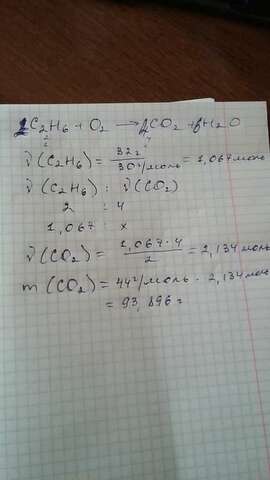 2C₂H₆ + O₂ → 4CO₂ + 6H₂O
ν(C₂H₆) = 32г / 30г/моль = 1,067 моль
ν(C₂H₆) : ν(CO₂)
2 : 4
1,067 : x
ν(CO₂) = 1,067·4 / 2 = 2,134 моль
m(CO₂) = 44г/моль · 2,134 моль
= 93,896 г